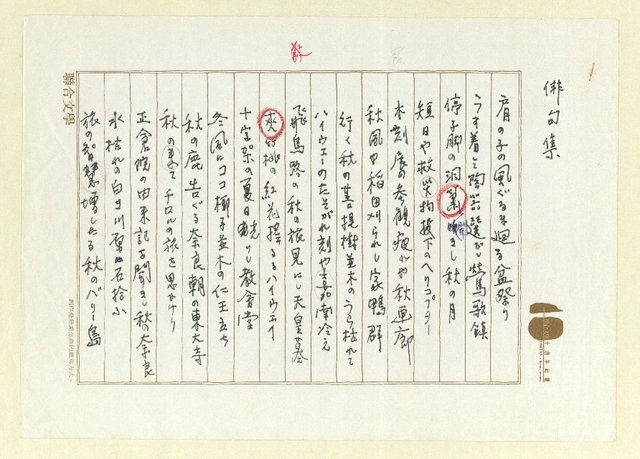 俳句集
肩の子の風ぐるま廻る盆祭り
うす着して陶器選びし鶯歌鎮
停子脚の洞簫嘆きし秋の月
短日や救災物投下のヘリコプター
木刻展の参観疲れや秋画廊
秋風や稲田刈られし家鴨群
行く秋の菩提樹並木のうら枯れて
ハイウエーのたそがれ刻や嘉南冷え
飛鳥路の秋の旅見にし天皇墓
夾竹桃の紅花揺るるハイウエイ
十字架の夏日映りし教會堂
冬風にココ椰子並木の仁王立ち
秋の鹿告ぐる奈良朝の東大寺
秋の果てチロルの旅を思かけり
正倉院の由来記を聞きし秋の奈良
水枯れの白き川原の石拾ふ
旅の智慧増したる秋のバリー島
聯合文學